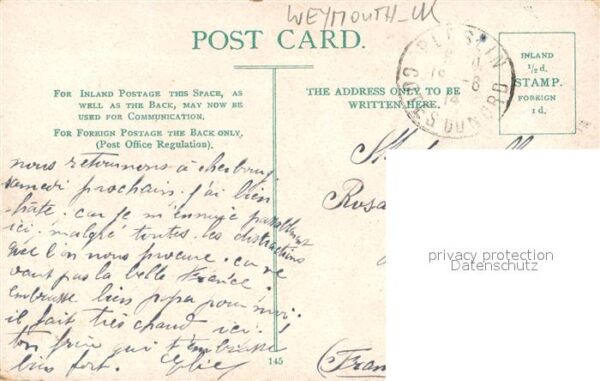 WEYMOUTH
POST CARD.
FOR INLAND POSTAGE THIS SPACE, AS
WELL AS THE BACK, MAY NOW BE
USED FOR COMMUNICATION.
FOR FOREIGN POSTAGE THE BACK ONLY,
(Post Office Regulation).
THE ADDRESS ONLY TO BE
WRITTEN HERE.
PLESLIN
18 -8
14
COTES DU NORD
INLAND
½ d.
STAMP.
FOREIGN
1 d.
nous retournons à cherbourg
samedi prochain. j'ai bien
hâte. car je m'ennuie passablement
ici. malgré toutes les distractions
que l'on nous procure. ca ne
vaut pas la belle France.
embrasse bien papa pour moi.
il fait très chaud ici.
ton frère qui t'embrasse
bien fort.
Rosa
(Fran
145
privacy protection
Datenschutz